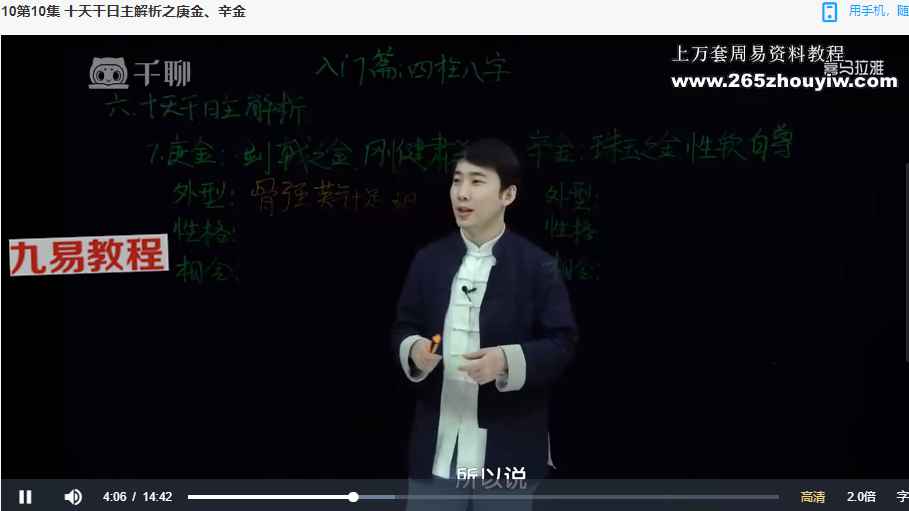 10第10集 十天干日主解析之庚金、辛金
用手机，随
千聊
入门篇:四柱八字
上万套周易资料教程
喜马拉雅
www.265zhouyiw.com
六.十天干日主解析
7.庚金:剑戟之金.刚健肃
辛金:珠玉之金.性软自尊
外型:骨强英
外型:
性格:
性格:
九易教程
相合:
相合:
所以说
4:06 / 14:42
高清
2.0倍
字